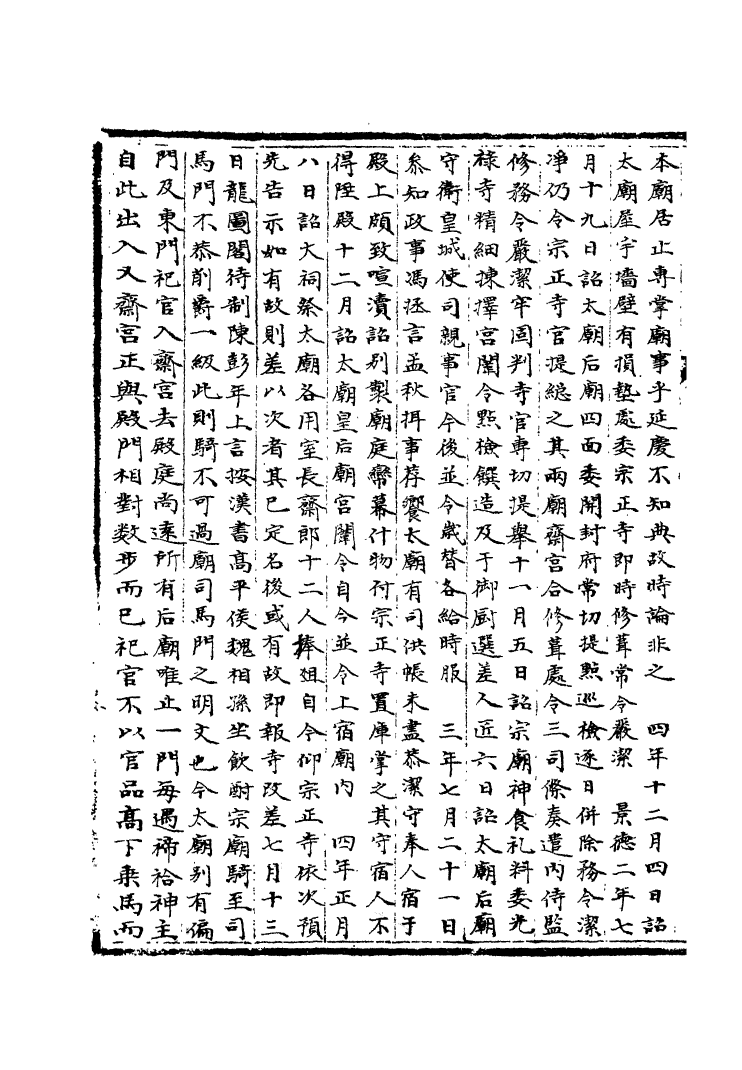 本廟居止專掌廟事乎延慶不知典故時論非之　四年十二月四日詔
太廟屋宇墻壁有損墊處委宗正寺即時修葺常令嚴潔　景德二年七
月十九日詔太廟后廟四面委開封府常切提㸃巡檢逐日併除務令潔
淨仍令宗正寺官提緫之其兩廟齋宮合修葺處令三司條奏遣內侍監
修務令嚴潔牢固判寺官專切提舉十一月五日詔宗廟神食礼料委光
祿寺精細揀擇宮闈令㸃檢饌造及于御厨選差人匠六日詔太廟后廟
守衛皇城使司親事官今後並令歲替各給時服　三年七月二十一日
叅知政事馮拯言孟秋揖事荐饗太廟有司供帳未盡恭潔守奉人宿于
殿上頗致喧瀆詔別製廟庭帟幕什物付宗正寺置庫掌之其守宿人不
得陞殿十二月詔太廟皇后廟宮闈令自今並令上宿廟內　四年正月
八日詔大祠祭太廟各用室長齋郎十二人捧俎自今仰宗正寺依次預
先告示如有故則差以次者其已定名後或有故即報寺改差七月十三
日龍圖閣待制陳彭年上言按漢書高平侯魏相孫坐飲酎宗廟騎至司
馬門不恭削爵一級此則騎不可過廟司馬門之明文也今太廟別有偏
門及東門祀官入齋宮去殿庭尚遠所有后廟唯止一門每遇禘祫神主
自此出入又齋宮正與殿門相對数步而已祀官不以官品髙下乗馬而